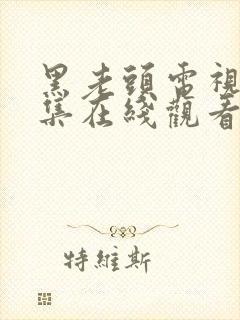 黑老頭電視
集在綫觀看
特維斯